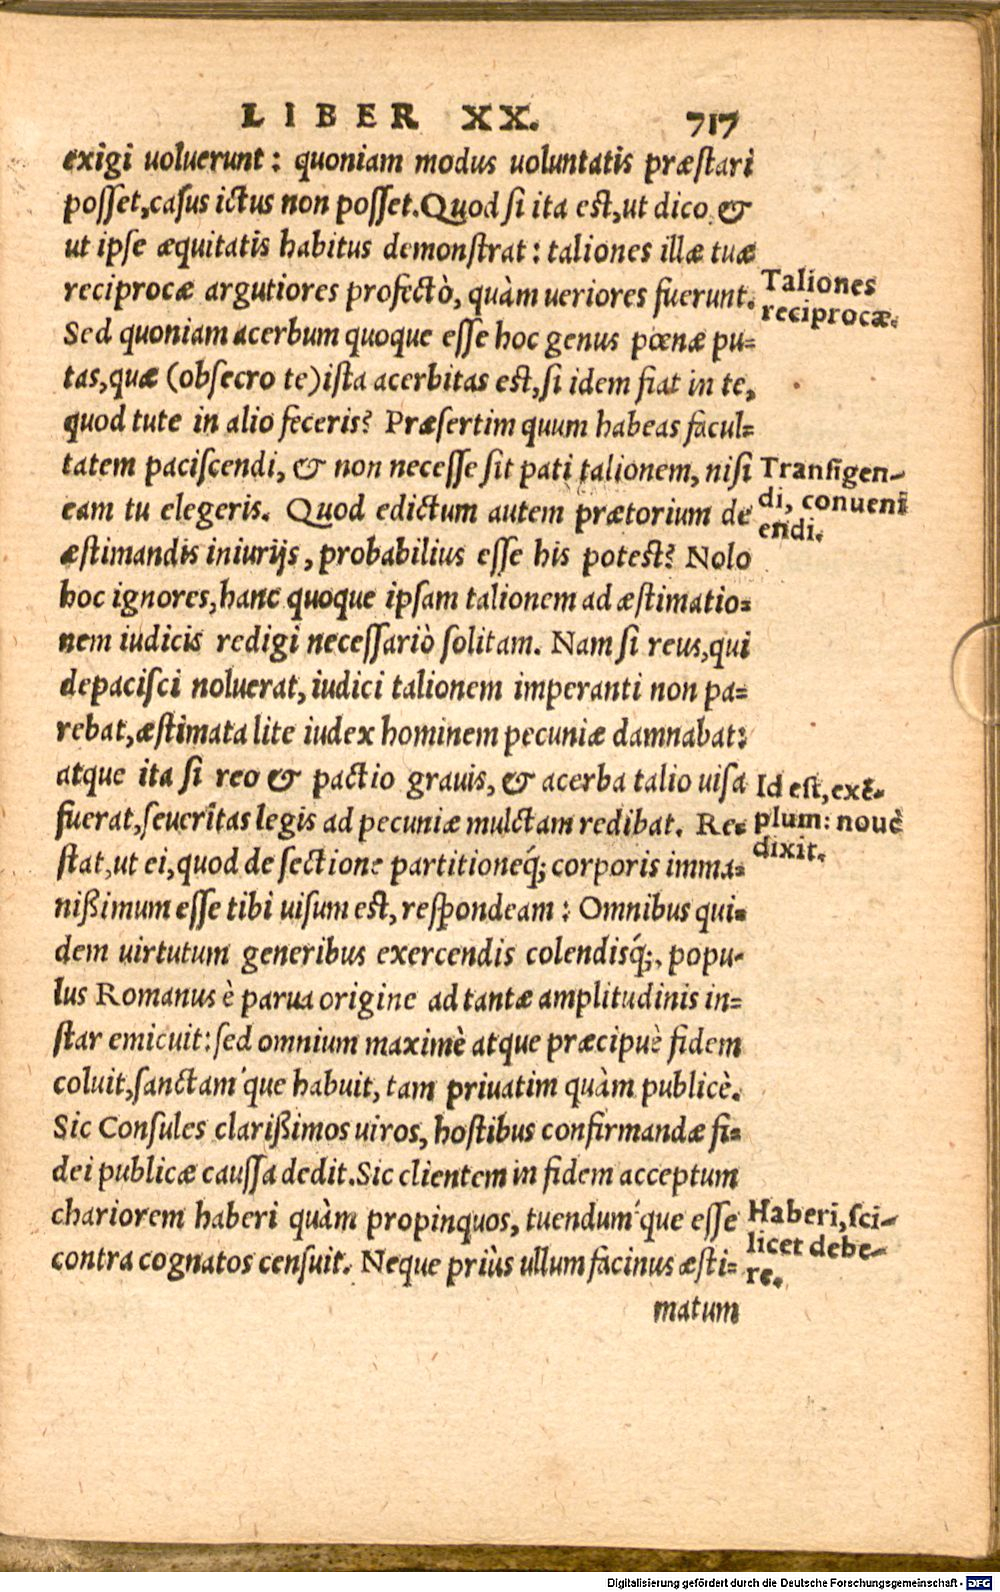 LIBER XX. 717
exigi uoluerunt: quoniam modus uoluntatis præstari
posset, casus ictus non posset. Quod si ita est, ut dico, &
ut ipse æquitatis habitus demonstrat: taliones illæ tuæ
reciprocæ argutiores profectò, quàm ueriores fuerunt.
Taliones
reciprocæ.
Sed quoniam acerbum quoque esse hoc genus pœnæ pu-
tas, quæ (obsecro te) ista acerbitas est, si idem fiat in te,
quod tute in alio feceris? Præsertim quum habeas facul-
tatem paciscendi, & non necesse sit pati talionem, nisi
eam tu elegeris. Quod edictum autem prætorium de
Transigen-
di, conueni
endi.
æstimandis iniurijs, probabilius esse his potest? Nolo
hoc ignores, hanc quoque ipsam talionem ad æstimatio-
nem iudicis redigi necessariò solitam. Nam si reus, qui
depacisci noluerat, iudici talionem imperanti non pa-
rebat, æstimata lite iudex hominem pecuniæ damnabat:
atque ita si reo & pactio grauis, & acerba talio uisa
fuerat, seueritas legis ad pecuniæ mulctam redibat. Re-
Id est, exē-
plum: nouè
dixit.
stat, ut ei, quod de sectione partitioneq́; corporis imma-
nißimum esse tibi uisum est, respondeam: Omnibus qui-
dem uirtutum generibus exercendis colendisq́;, popu-
lus Romanus è parua origine ad tantæ amplitudinis in-
star emicuit: sed omnium maximè atque præcipuè fidem
coluit, sanctam´que habuit, tam priuatim quàm publicè.
Sic Consules clarißimos uiros, hostibus confirmandæ fi-
dei publicæ caussa dedit. Sic clientem in fidem acceptum
chariorem haberi quàm propinquos, tuendum´que esse
contra cognatos censuit. Neque priùs ullum facinus æsti-
Haberi, sci-
licet debe-
re.
matum
Digitalisierung gefördert durch die Deutsche Forschungsgemeinschaft - DFG